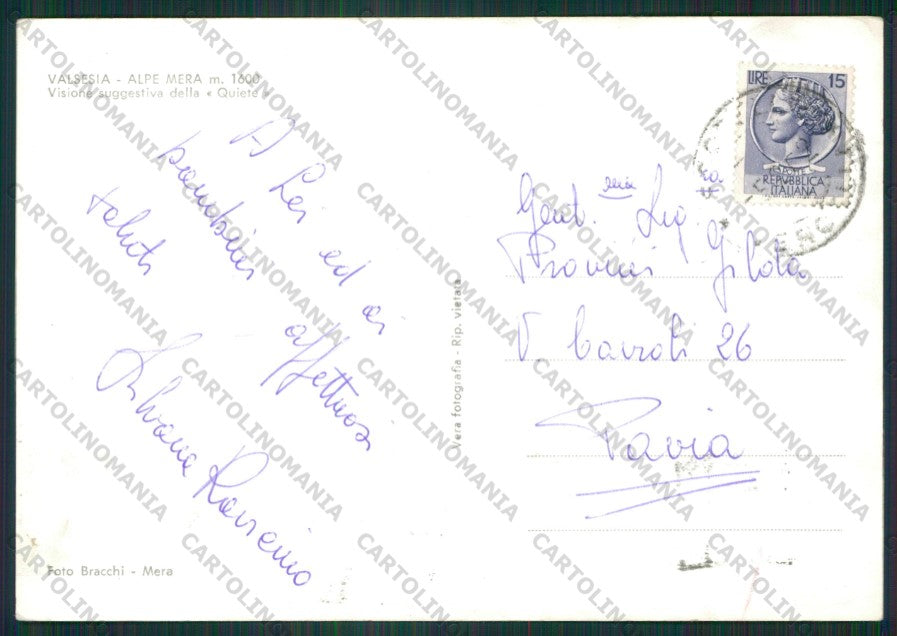 VALSESIA - ALPE MERA m. 1600
Visione suggestiva della « Quiete »
A Lei ed ai
bambini affettuosi
saluti
Silvana
Foto Bracchi - Mera
Vera fotografia - Rip. vietata
LIRE 15
REPVBBLICA
ITALIANA
Gent.ma Sig.ra
Gilda
V. Cairoli 26
Pavia
CARTOLINOMANIA